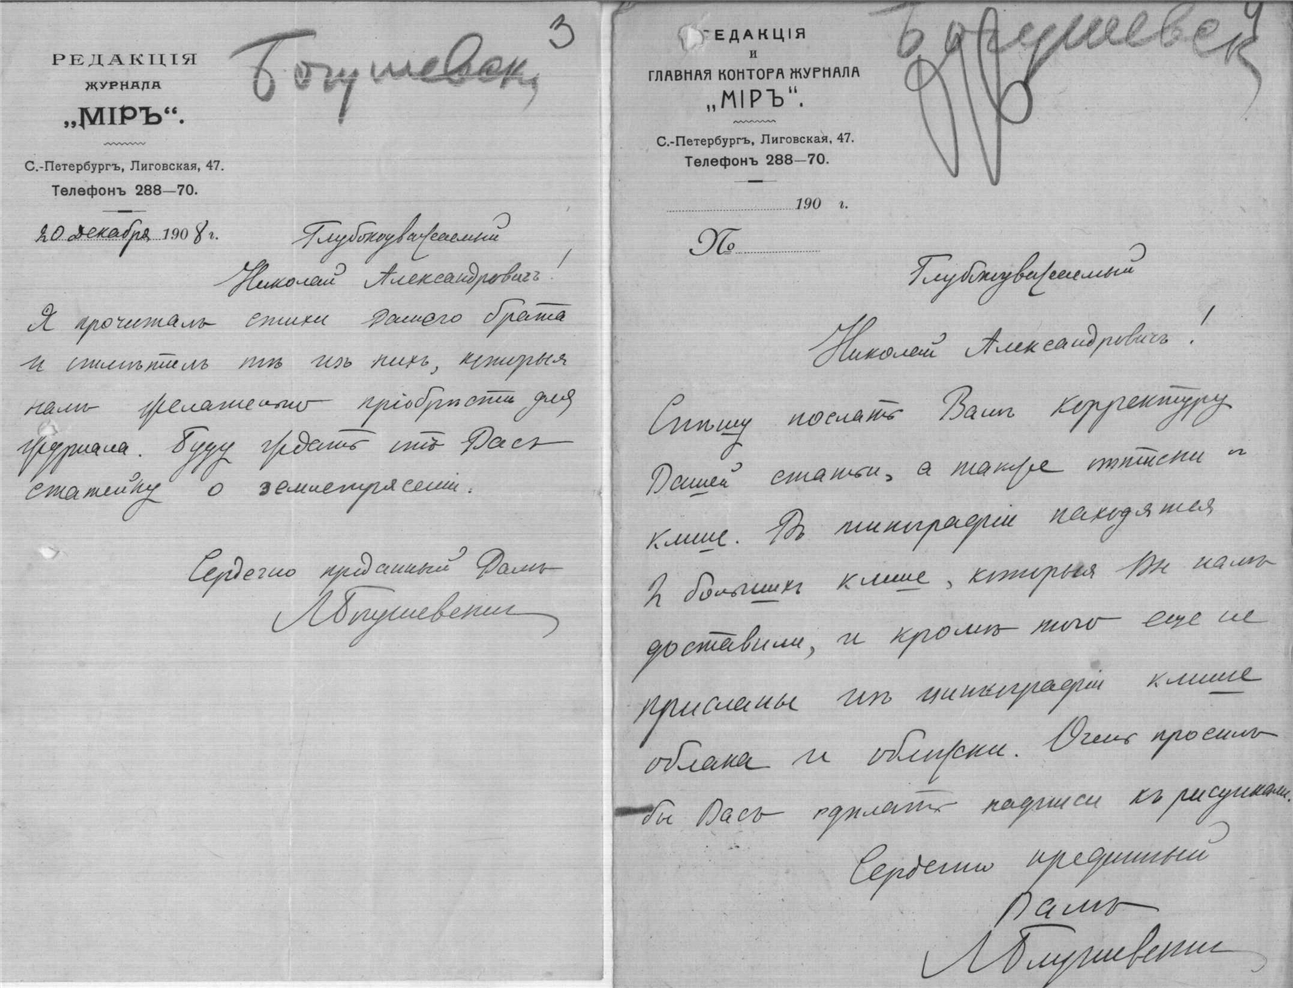 3
Богушевск
РЕДАКЦІЯ
ЖУРНАЛА
„МІРЪ“.
С.-Петербургъ, Лиговская, 47.
Телефонъ 288—70.
20 декабря 1908 г.
Глубокоуважаемый
Николай Александровичъ!
Я прочиталъ стихи Вашего брата
и отмѣтилъ тѣ изъ нихъ, которыя
намъ желательно пріобрѣсти для
журнала. Буду ждать отъ Васъ
статейку о землетрясеніи.
Сердечно преданный Вамъ
ЛБогушевскій
4
Богушевск
РЕДАКЦІЯ
и
ГЛАВНАЯ КОНТОРА ЖУРНАЛА
„МІРЪ“.
С.-Петербургъ, Лиговская, 47.
Телефонъ 288—70.
190 г.
№
Глубокоуважаемый
Николай Александровичъ!
Спѣшу послать Вамъ корректуру
Вашей статьи, а также оттиски и
клише. Въ типографіи находятся
2 большихъ клише, которыя Вы намъ
доставили, и кромѣ того еще не
присланы изъ цинкографіи клише
облака и обложки. Очень просилъ
бы Васъ сдѣлать надписи къ рисункамъ.
Сердечно преданный
Вамъ
ЛБогушевскій